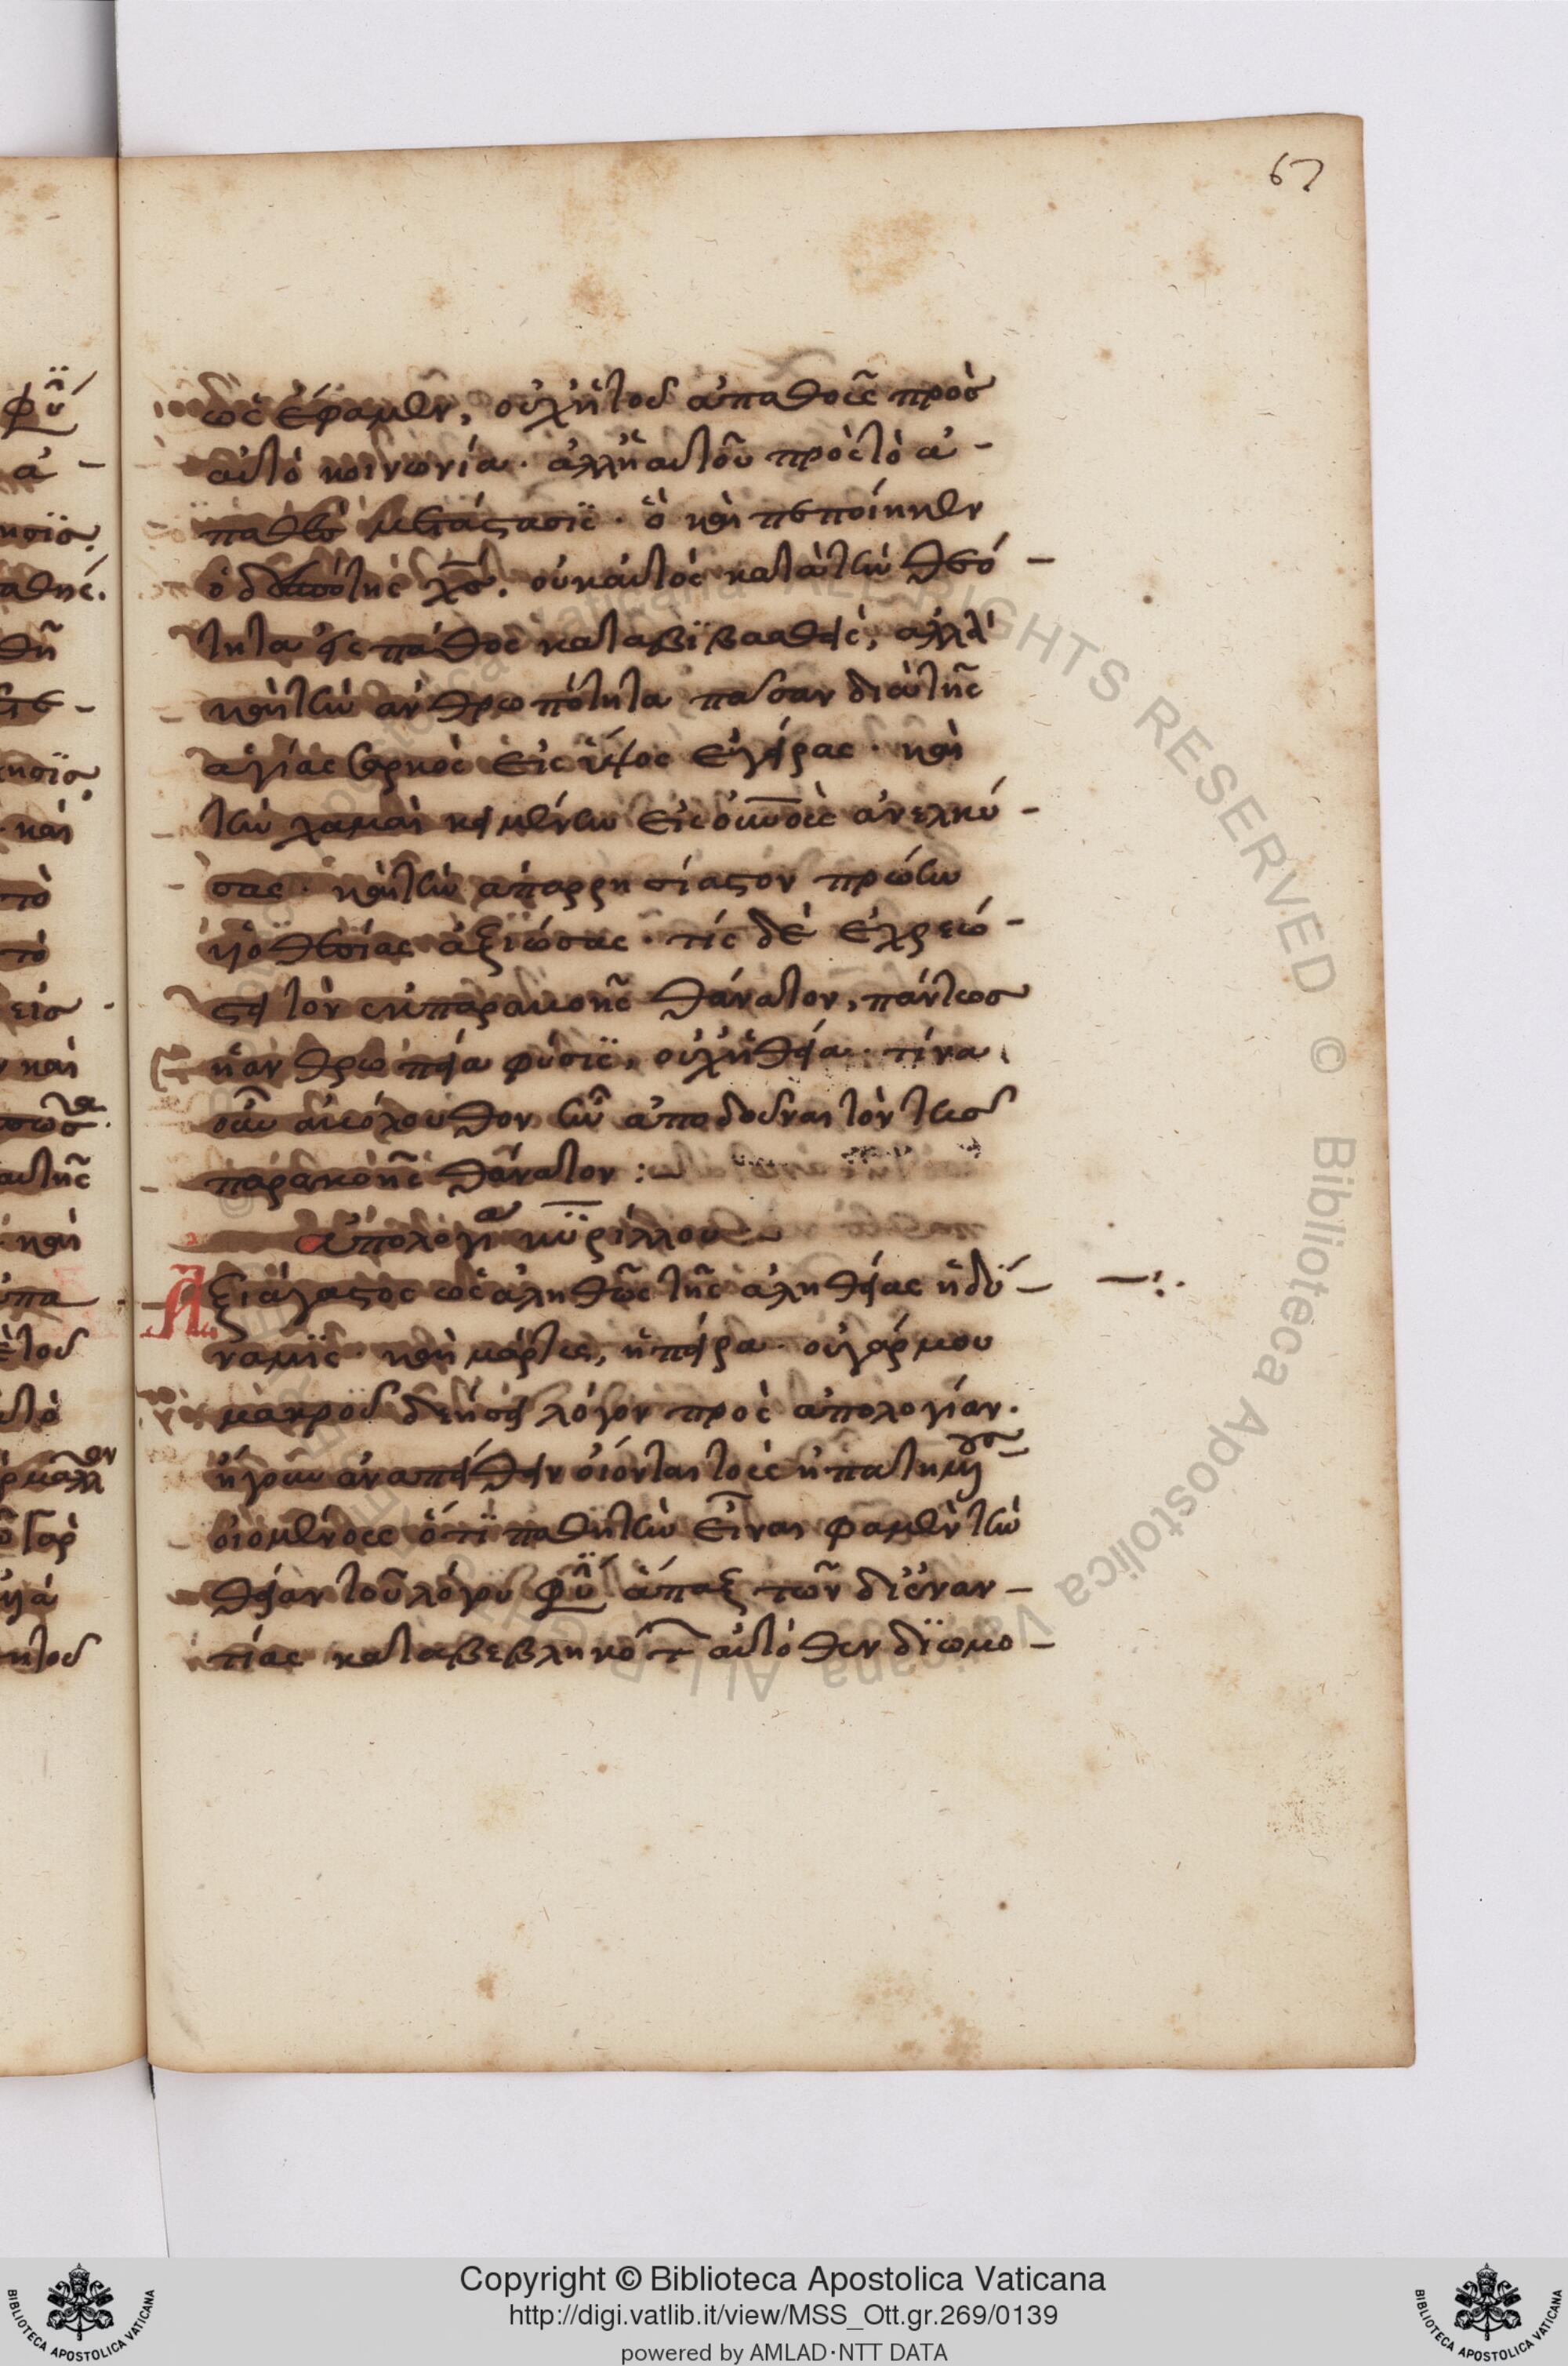 67
ὡς ἔφαμεν, οὐχ ἡ τοῦ ἀπαθοῦς πρὸς
αὐτὸ κοινωνία· ἀλλ' ἡ αὐτοῦ πρὸς τὸ ἀ-
παθὲς μετάστασις· ὃ καὶ πεποίηκεν
ὁ δεσπότης χς. οὐκ αὐτὸς κατὰ τὴν θεό-
τητα εἰς πάθος καταβιβασθεὶς, ἀλλὰ
καὶ τὴν ἀνθρωπότητα πᾶσαν διὰ τῆς
ἁγίας σαρκὸς εἰς ὕψος ἐγείρας· καὶ
τὴν χαμαὶ κειμένην εἰς οὐνοὺς ἀνελκύ-
σας· καὶ τὴν ἀπαρρησίαστον πρώτην
υἱοθεσίας ἀξιώσας· τίς δὲ ἐχρεώ-
στει τὸν ἐκ παρακοῆς θάνατον, πάντως
ἡ ἀνθρωπεία φύσις, οὐχ ἡ θεία· τίνα
οὖν ἀκόλουθον ἦν ἀποδοῦναι τὸν τῆς
παρακοῆς θάνατον :—
ἀπολογία κυρίλλου
Ἀξιάγαστος ὡς ἀληθῶς τῆς ἀληθείας ἡ δύ-
ναμις· καὶ μάρτυς, ἡ πεῖρα· οὐ γάρ μου
μακροῦ δεήσει λόγου πρὸς ἀπολογίαν.
ἢ γοῦν ἀναπείθειν οἴονται τοὺς ἠπατημένους
οἰομένους ὅτι παθητὴν εἶναι φαμὲν τὴν
θείαν τοῦ λόγου φύ ἅπαξ τῶν δι' ἐναν-
τίας καταβεβληκότ αὐτόθεν διωμο-
Copyright © Biblioteca Apostolica Vaticana
http://digi.vatlib.it/view/MSS_Ott.gr.269/0139
powered by AMLAD·NTT DATA
BIBLIOTECA APOSTOLICA VATICANA
BIBLIOTECA APOSTOLICA VATICANA